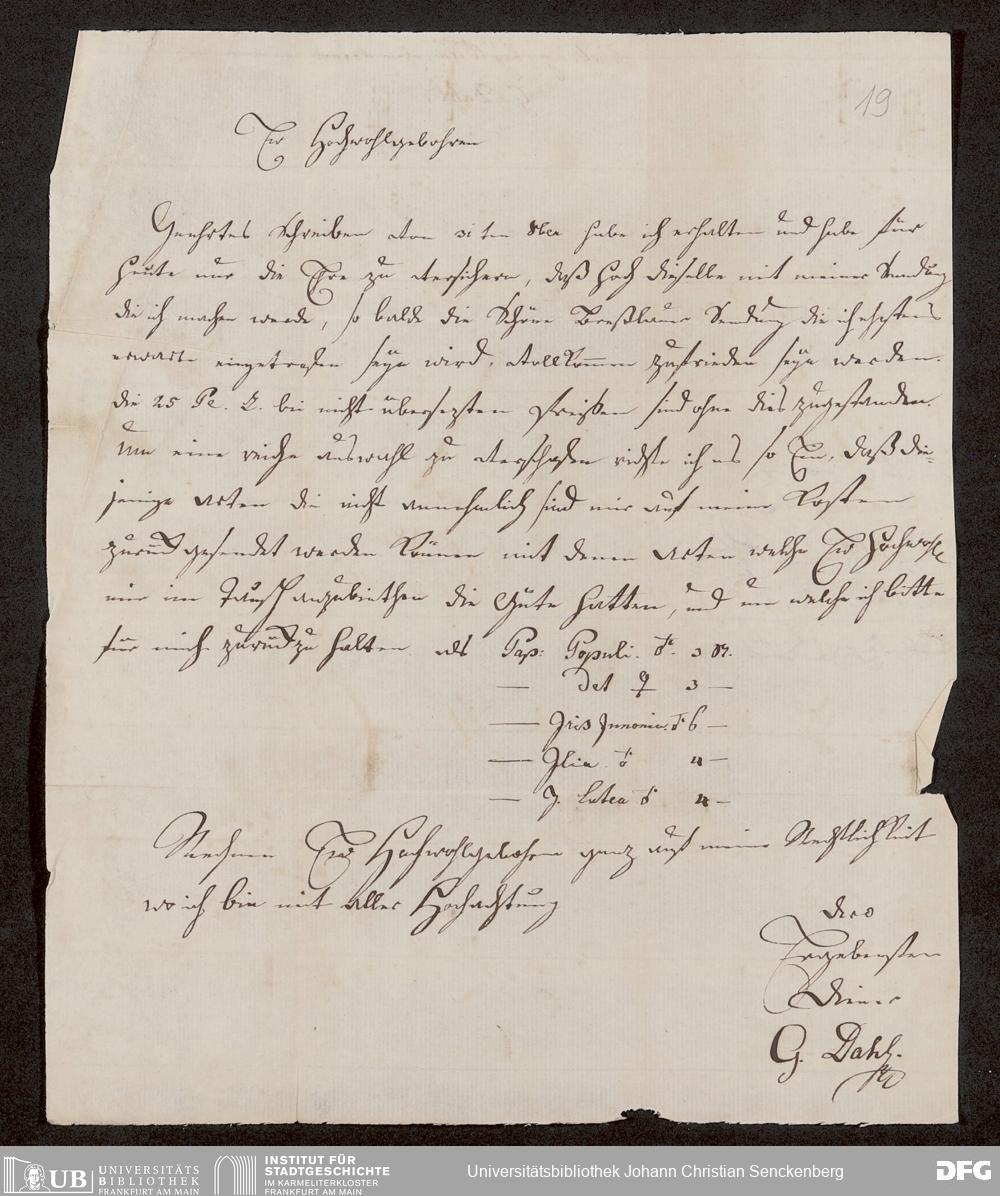 19
Ew Hochwohlgebohren
Geehrtes Schreiben vom 31 ten 8ber habe ich erhalten und habe für
heute nur die Ere zu versichern, daß hoch dieselbe mit meiner Sendung
die ich machen werde, so balde die Schöne Breßlauer Sendung die ich ehestens
erwarte eingetrofen seyn wird, vollkommen zufrieden seyn werden.
die 25 Pc. bei nicht übersezten Preißen sind ohne dies zugestanden.
Um eine reiche auswahl zu verschafen richte ich es so Ein, daß die-
jenige Arten die nicht annehmlich sind mir auf meine Kosten
zurück gesendet werden können mit denen Arten welche Ew Hochwohl
mir im Tausch anzubiethen die Güte hatten, und um welche ich bitte
für mich zurück zu halten als Pap: Populi. ♂. 3 St.
— det ♀ 3 —
— Iris Junonia. ♂ 6 —
— Ilia ♂ 4 —
— J. Lutea ♂ 4 —
Rechnen Ew Hochwohlgebohren ganz auf meine Rechtlichkeit
wo ich bin mit aller Hochachtung
dero
Ergebensten
Diener
G. Dahl.
UB UNIVERSITÄTS
BIBLIOTHEK
FRANKFURT AM MAIN
INSTITUT FÜR
STADTGESCHICHTE
IM KARMELITERKLOSTER
FRANKFURT AM MAIN
Universitätsbibliothek Johann Christian Senckenberg
DFG